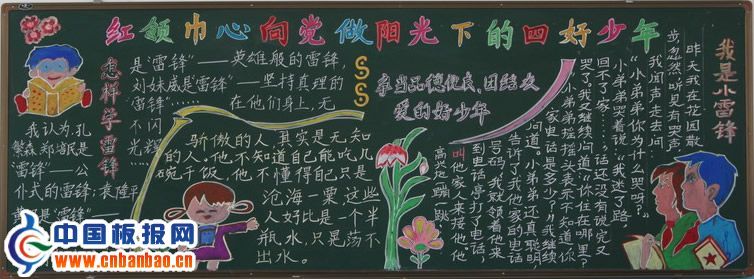 红领巾心向党做阳光下的四好少年
怎样学雷锋
是"雷锋"——英雄般的雷锋,
刘妹威是"雷锋"——坚持真理的
"雷锋"……　在他们身上,无
不闪
光辉
我认为,孔
繁森,郑培民是
"雷锋"——公
仆式的雷锋;袁隆平
是"雷锋"
骄傲的人,其实是无知
的人。他不知道自己能吃几
碗干饭,他不懂得自己只是
沧海一粟这些
人好比是一个半
瓶水,只是荡不
出水。
争当品德优良、团结友
爱的好少年
我是小雷锋
昨天我在花园散
步忽然听见有哭声
我闻声走去问
"小弟弟,你为什么哭啊?"
小弟弟哭着说:"我迷了路
回不了家……"话还没有说完又
哭了。我又继续问道"你住在哪里?"
小弟弟摇摇头表示不知道"你
家电话是多少?"我继续
问道。小弟弟还真聪明
告诉了我他家的电话
号码,我就领着他来
到电话亭打了电话,
叫他家人来接他。他
高兴地蹦跳
中国板报网
www.cnbanbao.cn